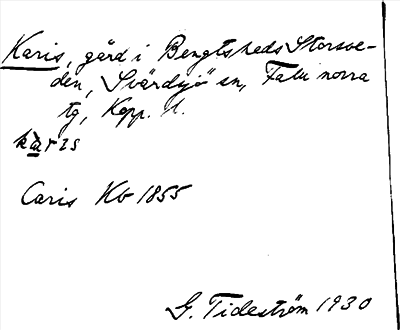 Karis, gård i Bengtsheds Storsve-
den, Svärdsjö sn, Falu norra
tg, Kopp. l.
kàrɪs
Caris Kb 1855
G. Tideström 1930